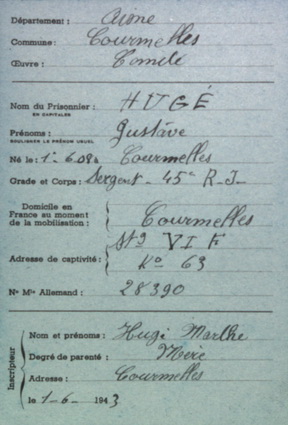 Département : Aisne
Commune : Courmelles
Œuvre : Comité
Nom du Prisonnier : HUGÉ
EN CAPITALES
Prénoms : Gustave
SOULIGNER LE PRÉNOM USUEL
Né le : Courmelles
Grade et Corps : Sergent - 45e R-I-
Domicile en
France au moment
de la mobilisation : Courmelles
Stg VI F
Adresse de captivité : Ko 63
No Mle Allemand : 28390
Inscripteur
Nom et prénoms : Marthe
Degré de parenté : Mère
Adresse : Courmelles
le 1-6- 1943